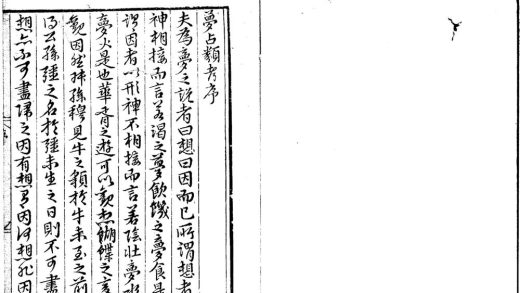 夢占類考序
夫為夢之說者曰想曰因而已所謂想者
神相接而言若渴之夢飲饑之夢食是
謂因者以形神不相接而言若陰壯夢水
夢火是也華胥之遊可以觀想蝴蝶之
觀因然叔孫穆見牛之貌於牛未至之前
聞公孫彊之名於彊未生之日則不可盡
想亦不可盡歸之因有想有因何想非因